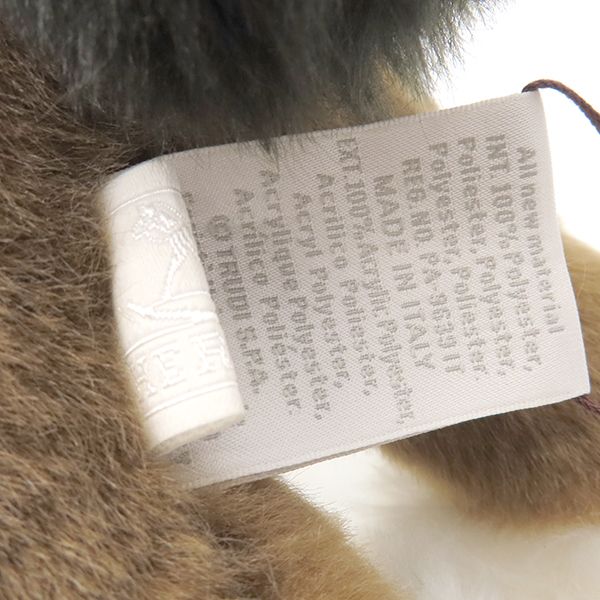 All new material
INT. 100% Polyester,
Poliester, Polyester,
Polyester, Poliester.
REG NO. PA-9639 IT
MADE IN ITALY
EXT. 100% Acrylic Polyester,
Acrilico Poliester,
Acryl Polyester,
Acrylique Polyester,
Acrilico Poliester.
©TRUDI S.P.A.